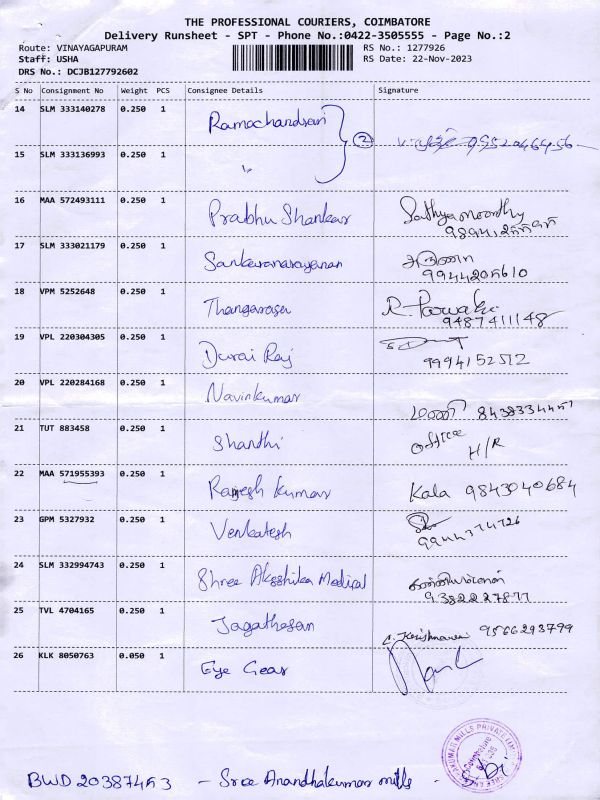 THE PROFESSIONAL COURIERS, COIMBATORE
Delivery Runsheet - SPT - Phone No.:0422-3505555 - Page No.:2
Route: VINAYAGAPURAM RS No.: 1277926
Staff: USHA RS Date: 22-Nov-2023
DRS No.: DCJB127792602
S No Consignment No Weight PCS Consignee Details Signature
14 SLM 333140278 0.250 1 Ramachandran 2
15 SLM 333136993 0.250 1 〃 9952046456
16 MAA 572493111 0.250 1 Prabhu Shankar Sathyamoorthy
17 SLM 333021179 0.250 1 Sankaranarayanan
9944205610
18 VPM 5252648 0.250 1 Thangarasu R. Parvathi
9487411148
19 VPL 220304305 0.250 1 Durai Raj
9994152512
20 VPL 220284168 0.250 1 Navinkumar
21 TUT 883458 0.250 1 Shanthi office
H/R
22 MAA 571955393 0.250 1 Rajesh Kumar Kala 9843040684
23 GPM 5327932 0.250 1 Venkatesh
9944374726
24 SLM 332994743 0.250 1 Shree Aksshika Medical
9382227877
25 TVL 4704165 0.250 1 Jagathesan 9566293799
26 KLK 8050763 0.050 1 Eye Gear
BWD 20387453 - Sree Anandhakumar mills -